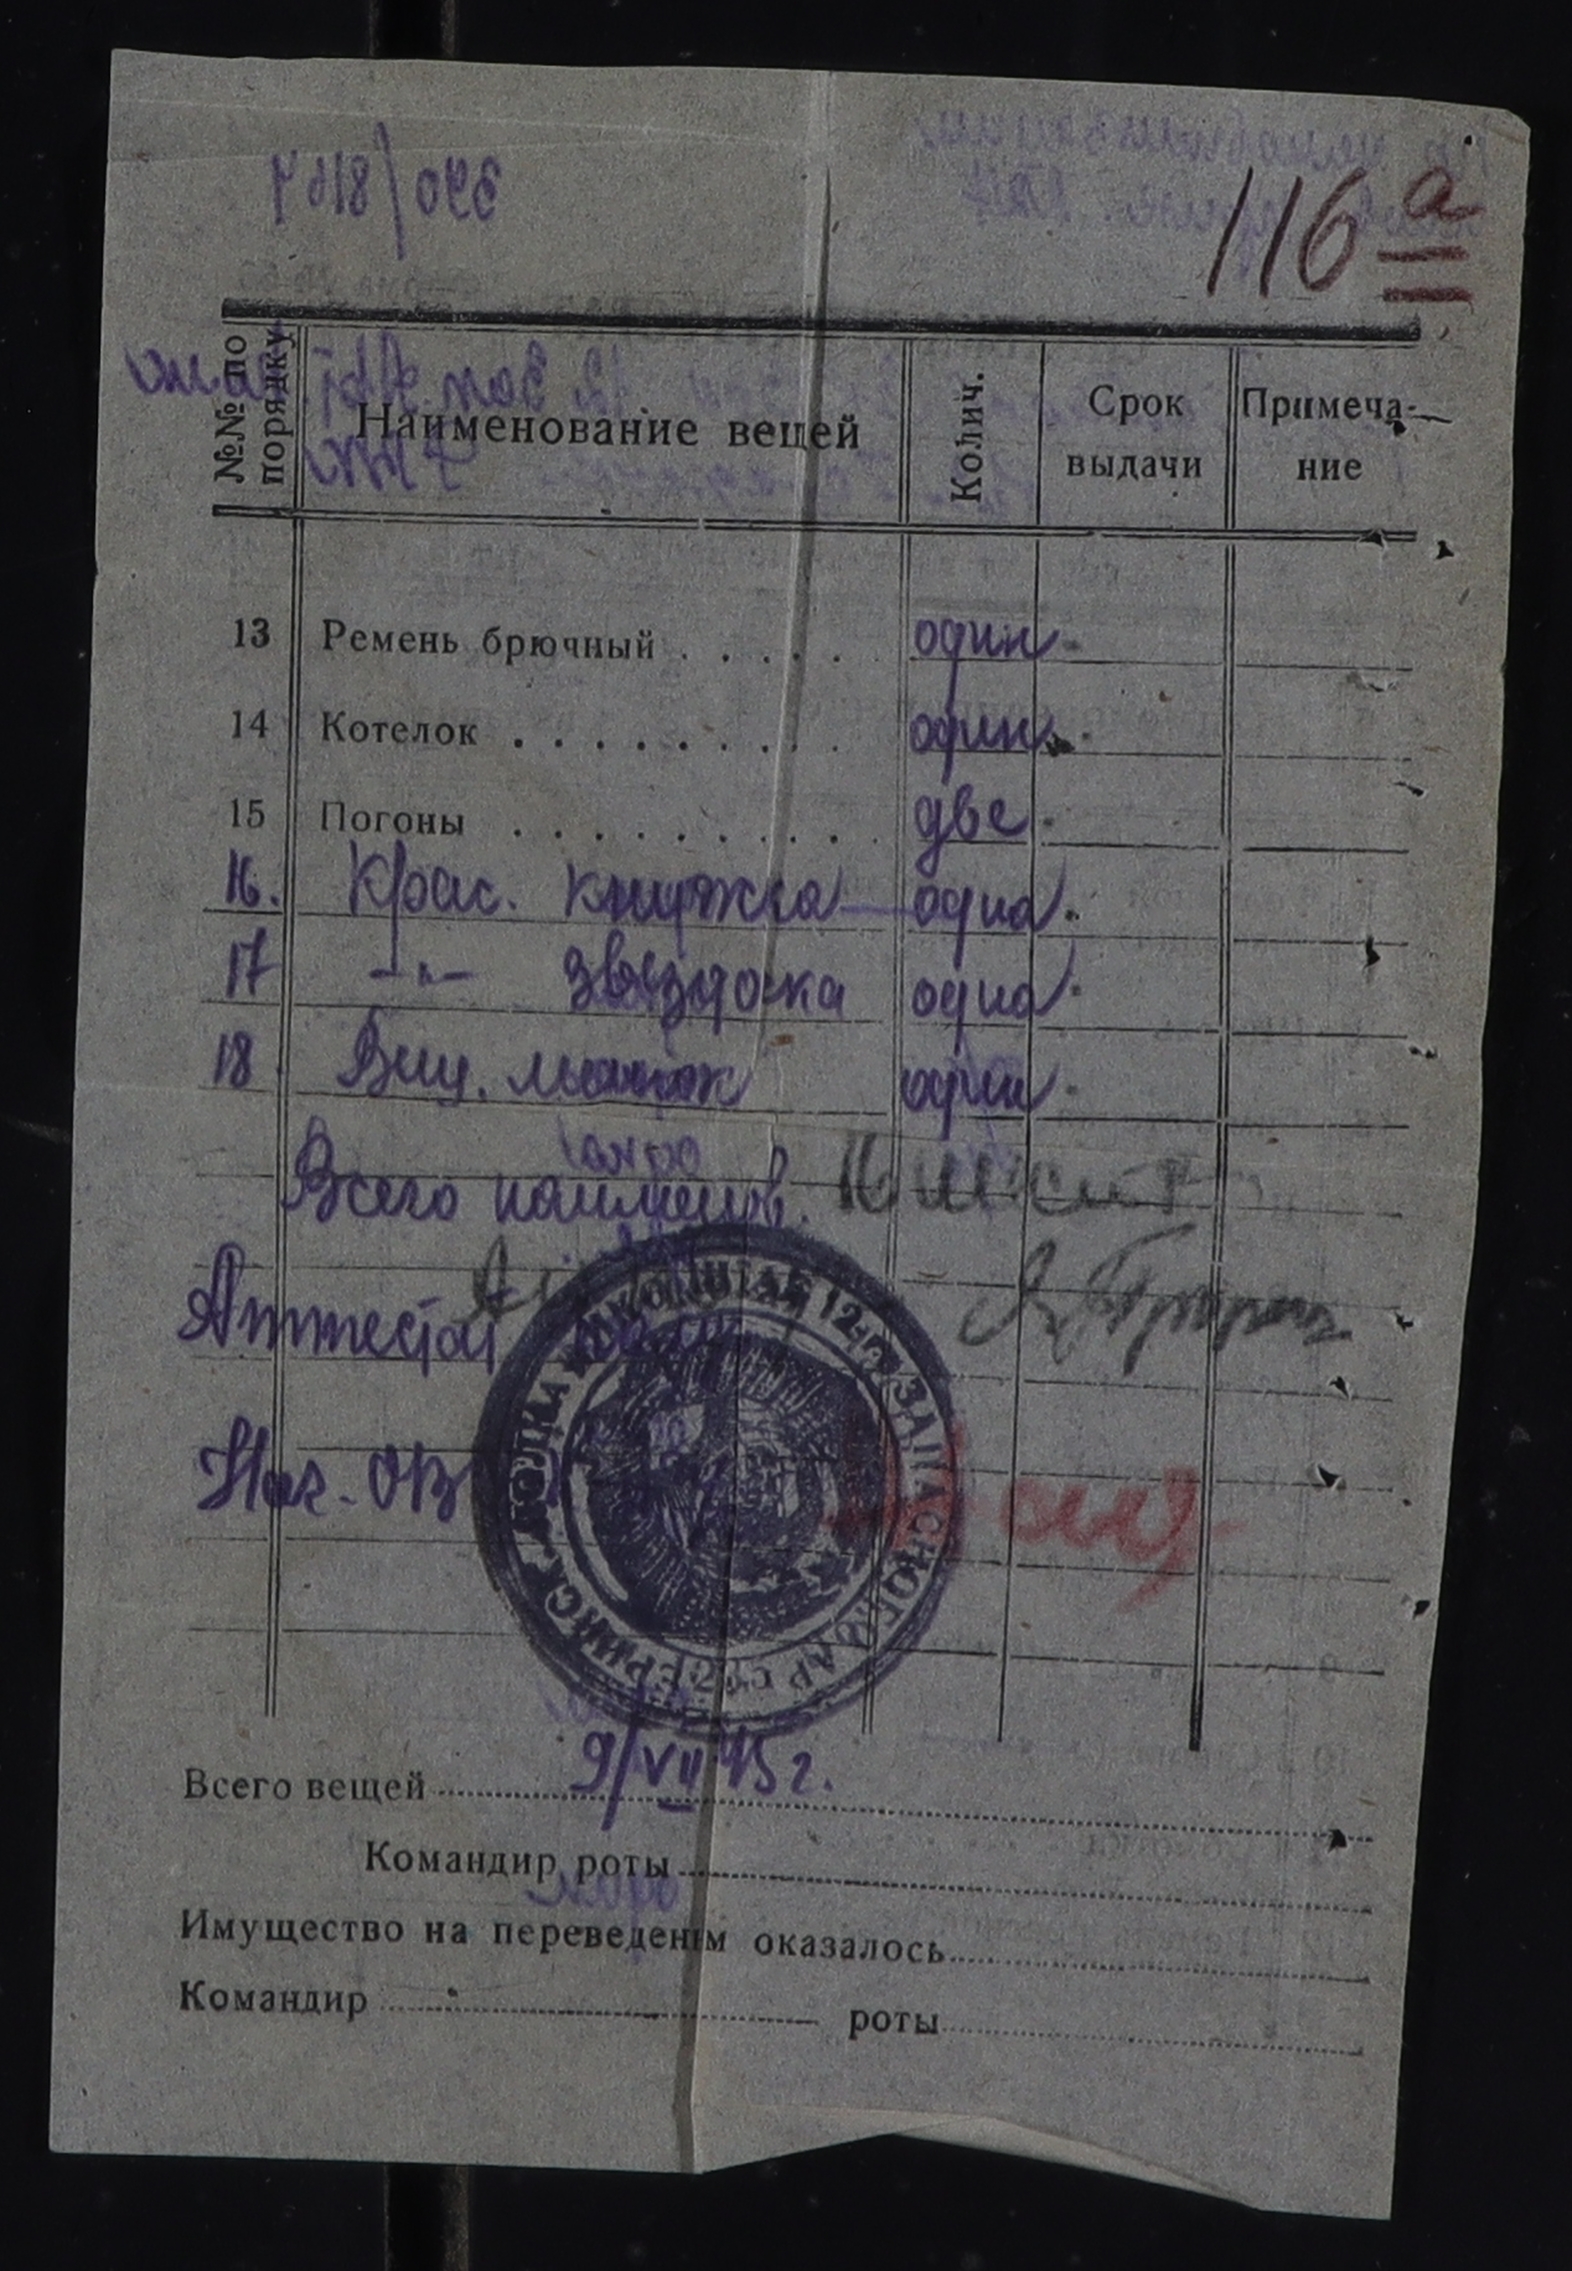 116 а
№№ по порядку
Наименование вещей
Колич.
Срок выдачи
Примеча-
ние
13 Ремень брючный . . . . . один
14 Котелок . . . . . . . . . один
15 Погоны . . . . . . . . . . две
16. Крас. книжка — одна
17 –"– звездочка одна
18 Вещ. мешок один
Всего наименов.
Аттестат
Нач. ОВ
12-Г ЗАПАСНОЙ
9/VII 45 г.
Всего вещей
Командир роты
Имущество на переведеним оказалось
Командир роты